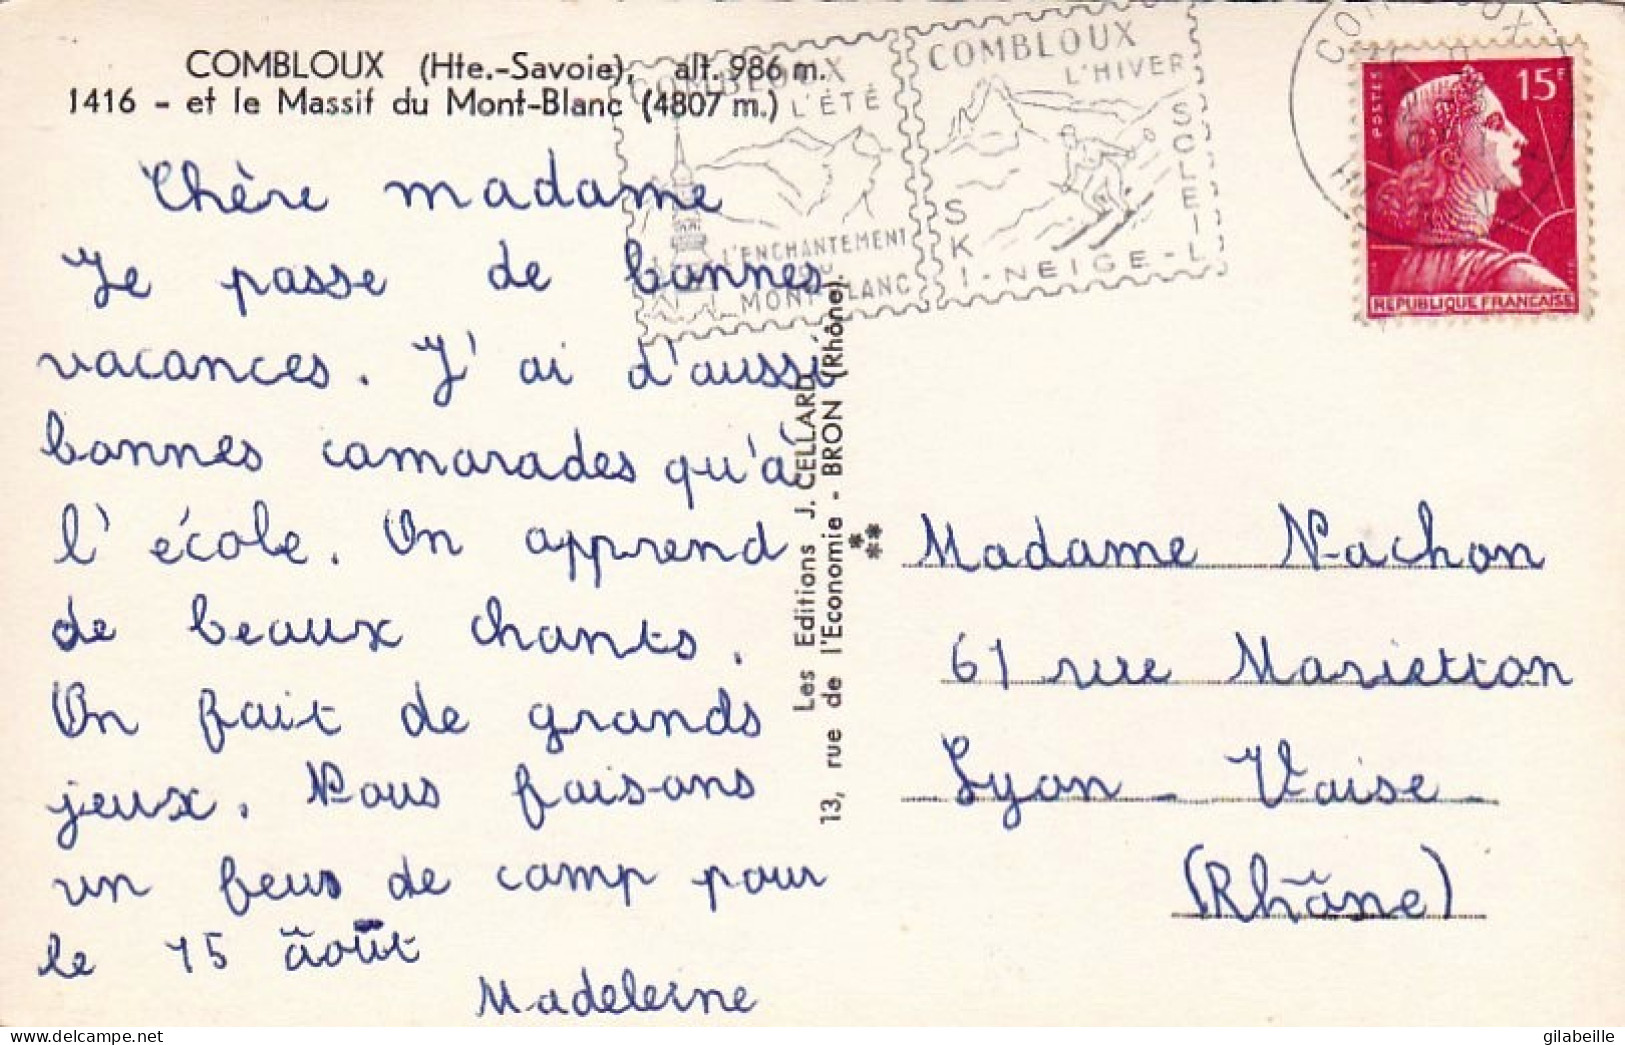 COMBLOUX (Hte.-Savoie), alt. 986 m.
1416 - et le Massif du Mont-Blanc (4807 m.)
COMBLOUX
L'ÉTÉ
L'ENCHANTEMENT
DU
MONT-BLANC
COMBLOUX
L'HIVER
SKI-NEIGE-SOLEIL
POSTES
15F
REPUBLIQUE FRANÇAISE
Chère madame
Je passe de bonnes
vacances. J'ai d'aussi
bonnes camarades qu'à
l'école. On apprend
de beaux chants.
On fait de grands
jeux. Nous faisons
un feus de camp pour
le 15 août
Madeleine
Les Editions J. CELLARD
13, rue de l'Economie - BRON (Rhône).
Madame Nachon
61 rue Marietton
Lyon - Vaise -
(Rhône)
gilabeille